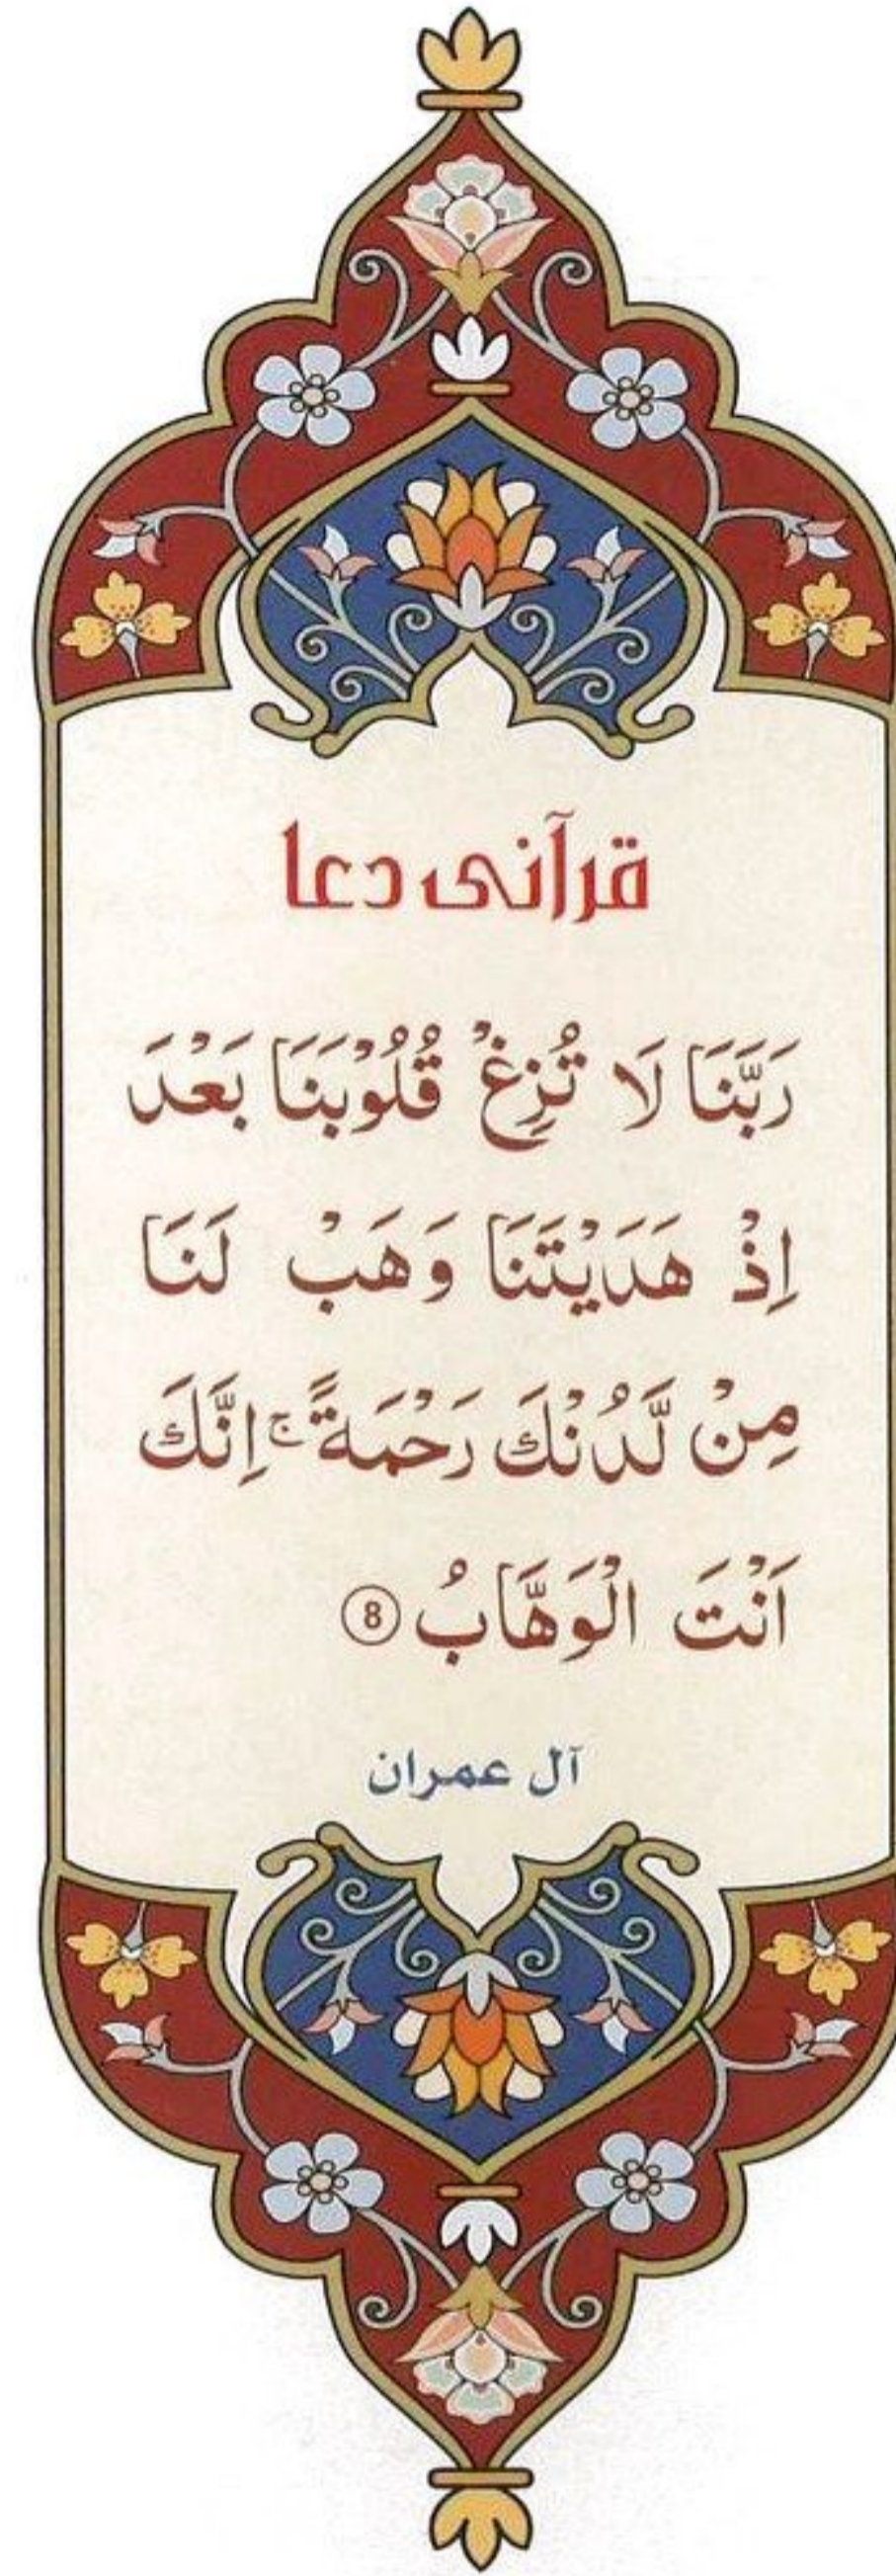 قرآنی دعا
رَبَّنَا لَا تُزِغْ قُلُوْبَنَا بَعْدَ
اِذْ هَدَيْتَنَا وَهَبْ لَنَا
مِنْ لَّدُنْكَ رَحْمَةً ۚ اِنَّكَ
اَنْتَ الْوَهَّابُ ⑧
آل عمران